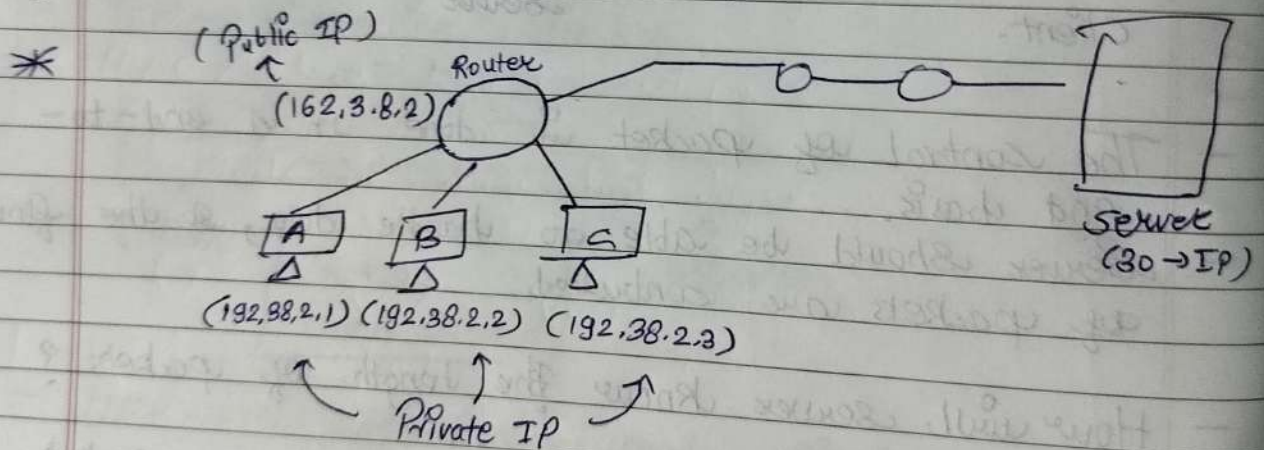 (Public IP)
Router
(162,3.8,2)
A
B
C
Server
(30 → IP)
(192,38,2,1) (192.38.2,2) (192.38.2,3)
Private IP